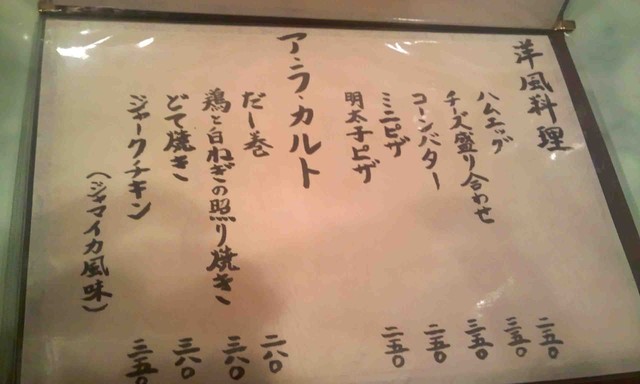 洋風料理
ハムエッグ 二五〇
チーズ盛り合わせ 三五〇
コーンバター 三五〇
ミニピザ 二五〇
明太子ピザ 二五〇
ア・ラ・カルト
だし巻 二八〇
鶏と白ねぎの照り焼き 三八〇
どて焼き 三八〇
ジャークチキン 三五〇
(ジャマイカ風味)